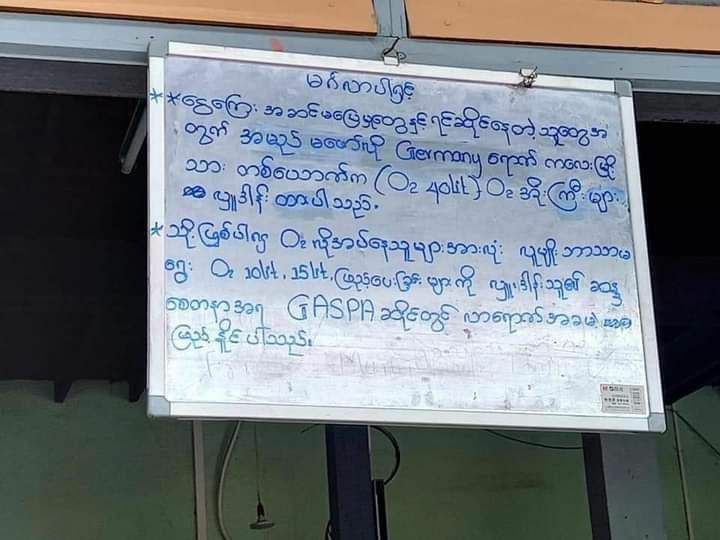 မင်္ဂလာပါရှင့်
**ငွေကြေး အဆင်မပြေမှုတွေနှင့် ရင်ဆိုင်နေတဲ့ သူတွေအ
တွက် အမည် မဖော်လို Germany ရောက် ကလေးမြို့
သား တစ်ယောက်က (O2 40lit) O2 အိုးကြီးများ
လှူဒါန်း ထားပါသည်.
*သို့ဖြစ်ပါ၍ O2 လိုအပ်နေသူများအားလုံး လူမျိုး ဘာသာမ
ရွေး O2 10lit, 15lit, ဖြည့်ပေးခြင်း များကို လှူဒါန်းသူ၏ ဆန္ဒ
စေတနာအရ GASPA ဆိုင်တွင် လာရောက်အခမဲ့
ဖြည့်နိုင်ပါသည်.